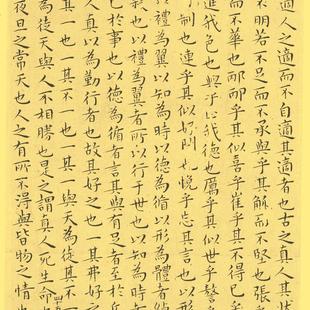 適人之適而不自適其適者也古之真人其狀
而不明若不足而不承與乎其觚而不堅也張乎
而不華也邴邴乎其似喜乎崔乎其不得已乎
進我色也與乎止我德也厲乎其似世乎謷乎
制也連乎其似好閉也悅乎忘其言也以
以禮為翼以知為時以德為循以形為體者綽
也以禮為翼者所以行于世也以知為時者
已於事也以德為循者言其與有足者至於丘
人真以為勤行者也故其好之也一其弗好之
一也一其不一也一其一與天為徒其不一
為徒天與人不相勝也是之謂真人死生命也
夜旦之常天也人之有所不得與皆物之情也